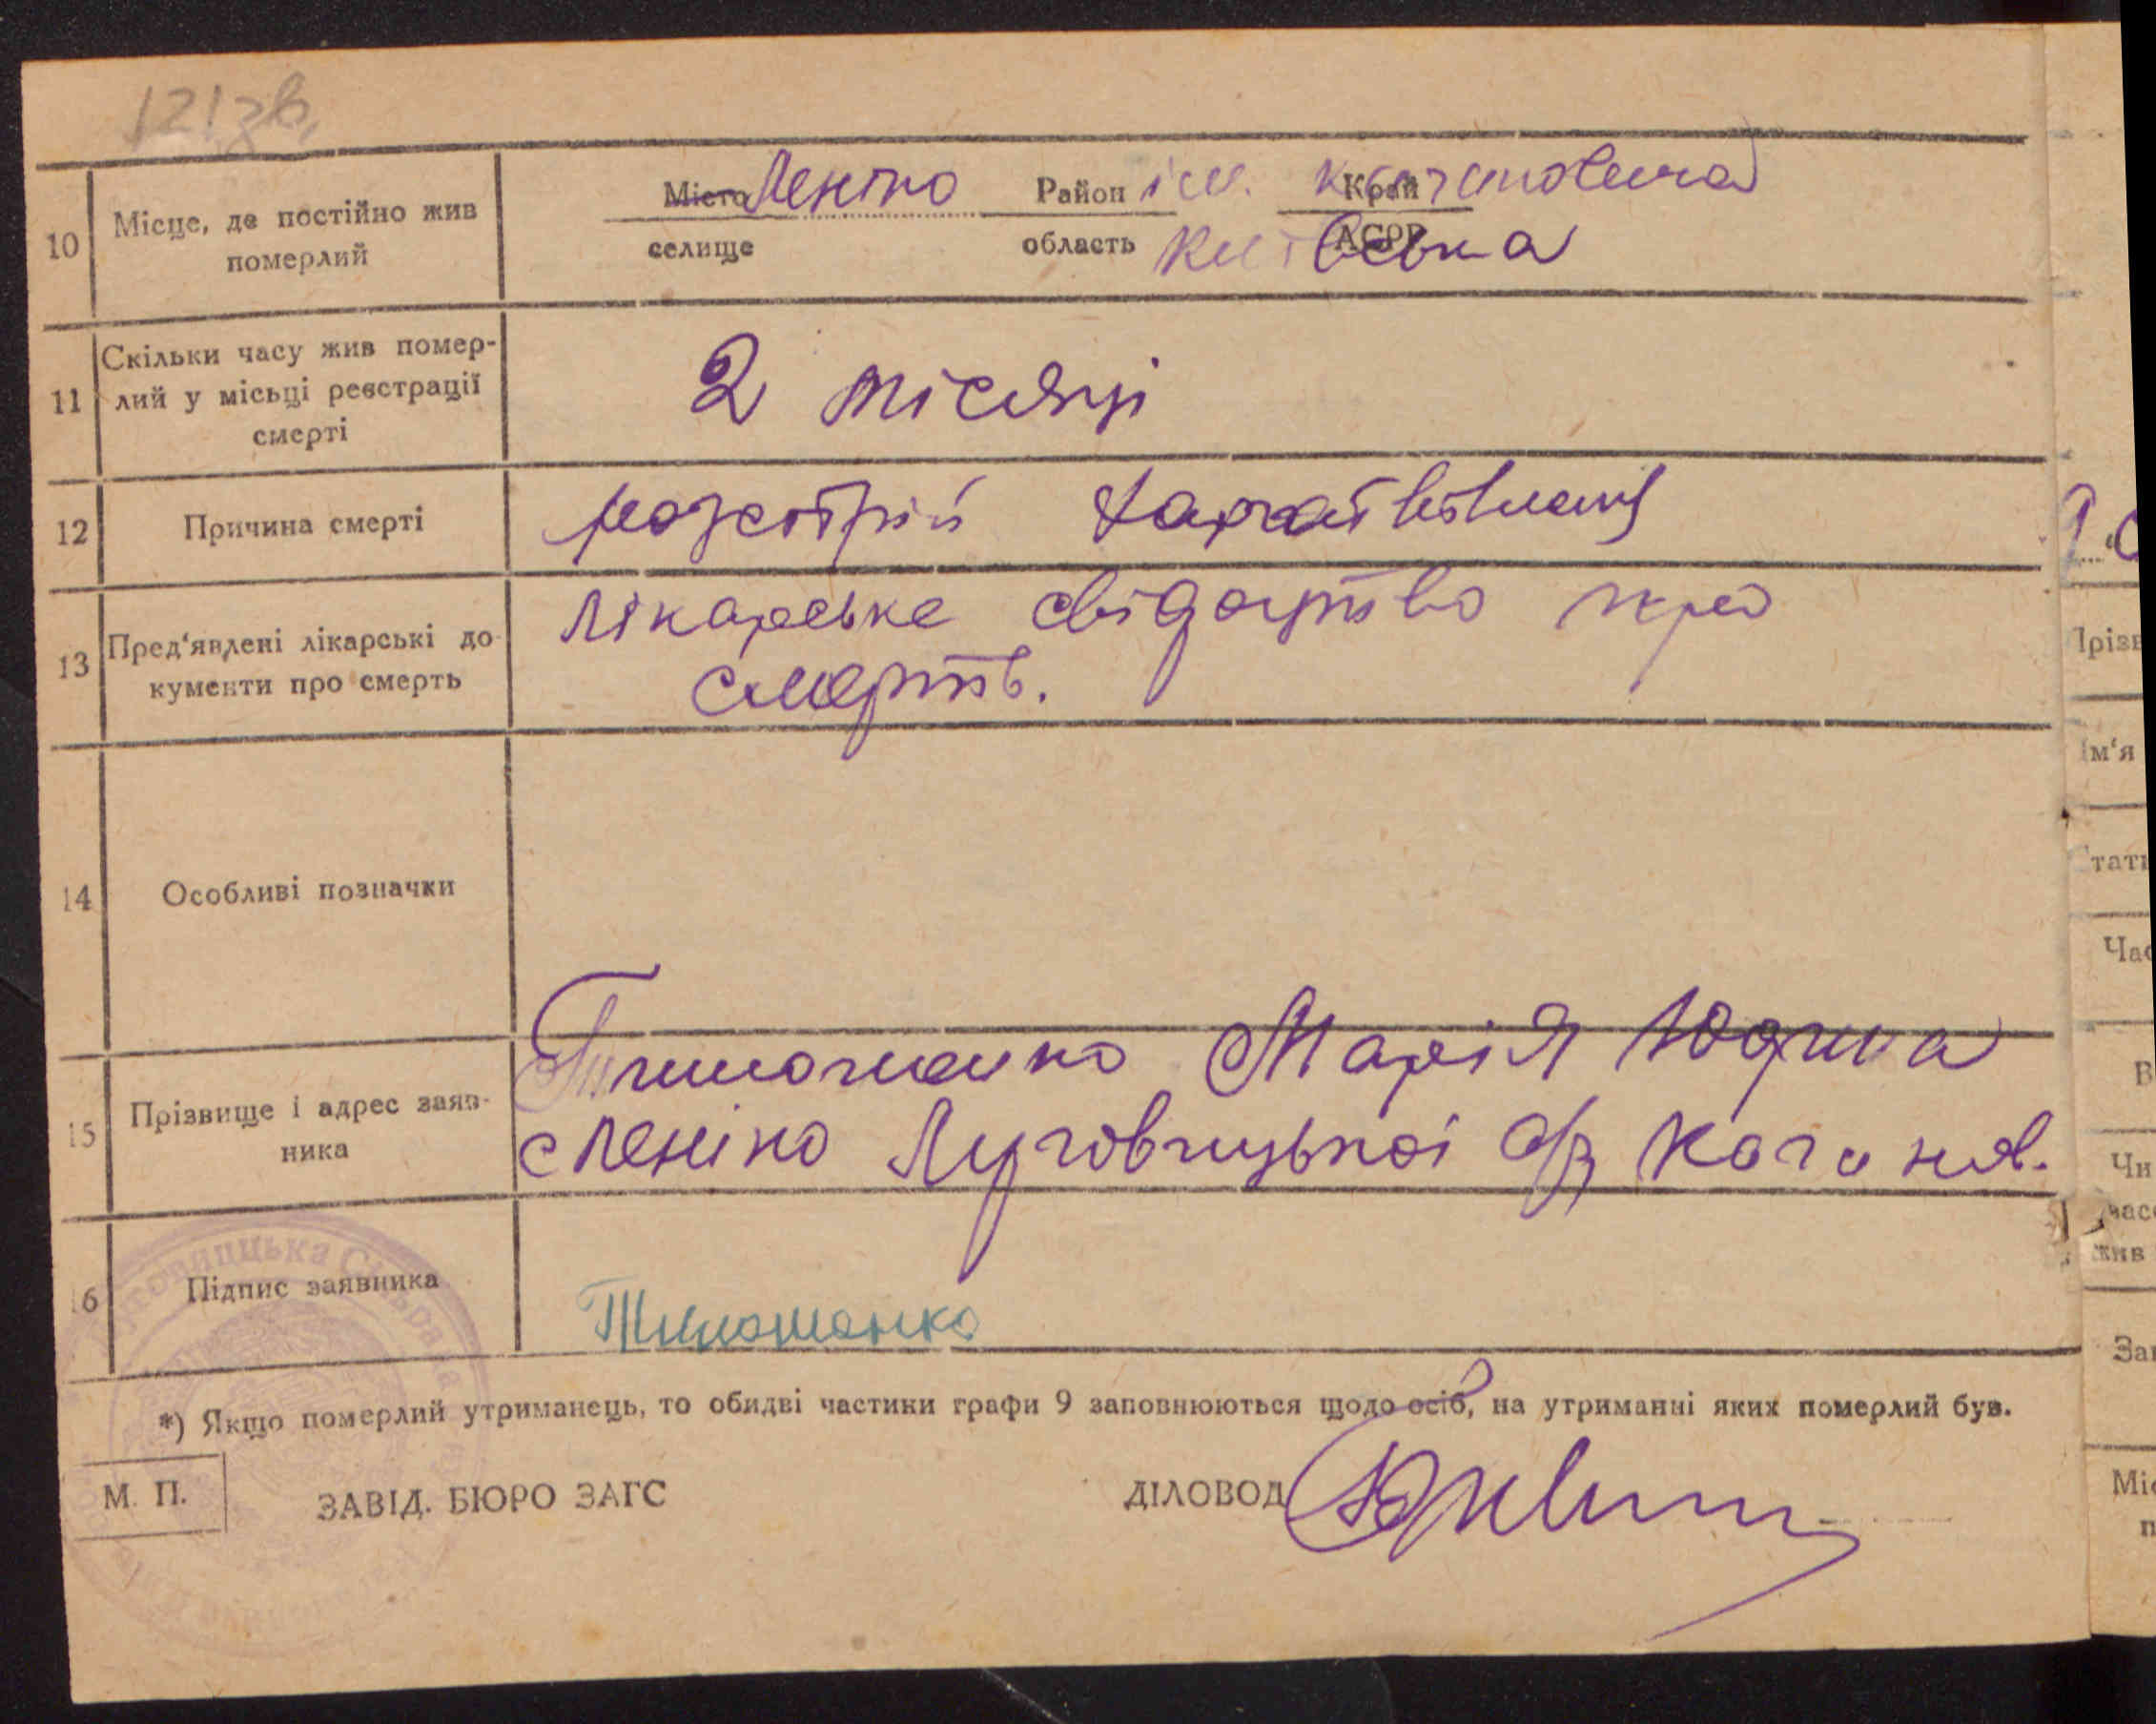 121зв.
10 Місце, де постійно жив померлий
Місто Леніно Район ім. Кагановича Край
селище область Київська АСРР
11 Скільки часу жив померлий у місьці реєстрації смерті
2 місяці
12 Причина смерті
розстрій
13 Пред'явлені лікарські документи про смерть
лікарське свідоцтво про
смерть.
14 Особливі позначки
15 Прізвище і адрес заявника
Тимошенко Марія
с Леніно Луговицької с/р Каганов.
16 Підпис заявника
Тимошенко
*) Якщо померлий утриманець, то обидві частини графи 9 заповнюються щодо осіб, на утриманні яких померлий був.
М. П. ЗАВІД. БЮРО ЗАГС ДІЛОВОД
Прізв
Ім'я
Час
Чи
жив